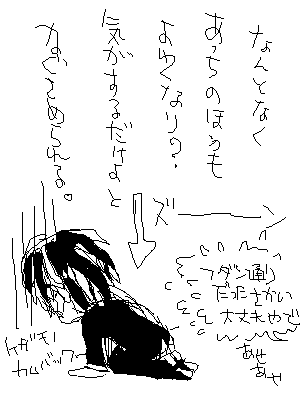 なんとなく
あっちのほうも
よゆくなり?
気がするだけよと
なぐさめられる。
ズーーン
フダン通り
だったさかい
大丈夫やで
あせ
あせ
ケガモノ
カムバック